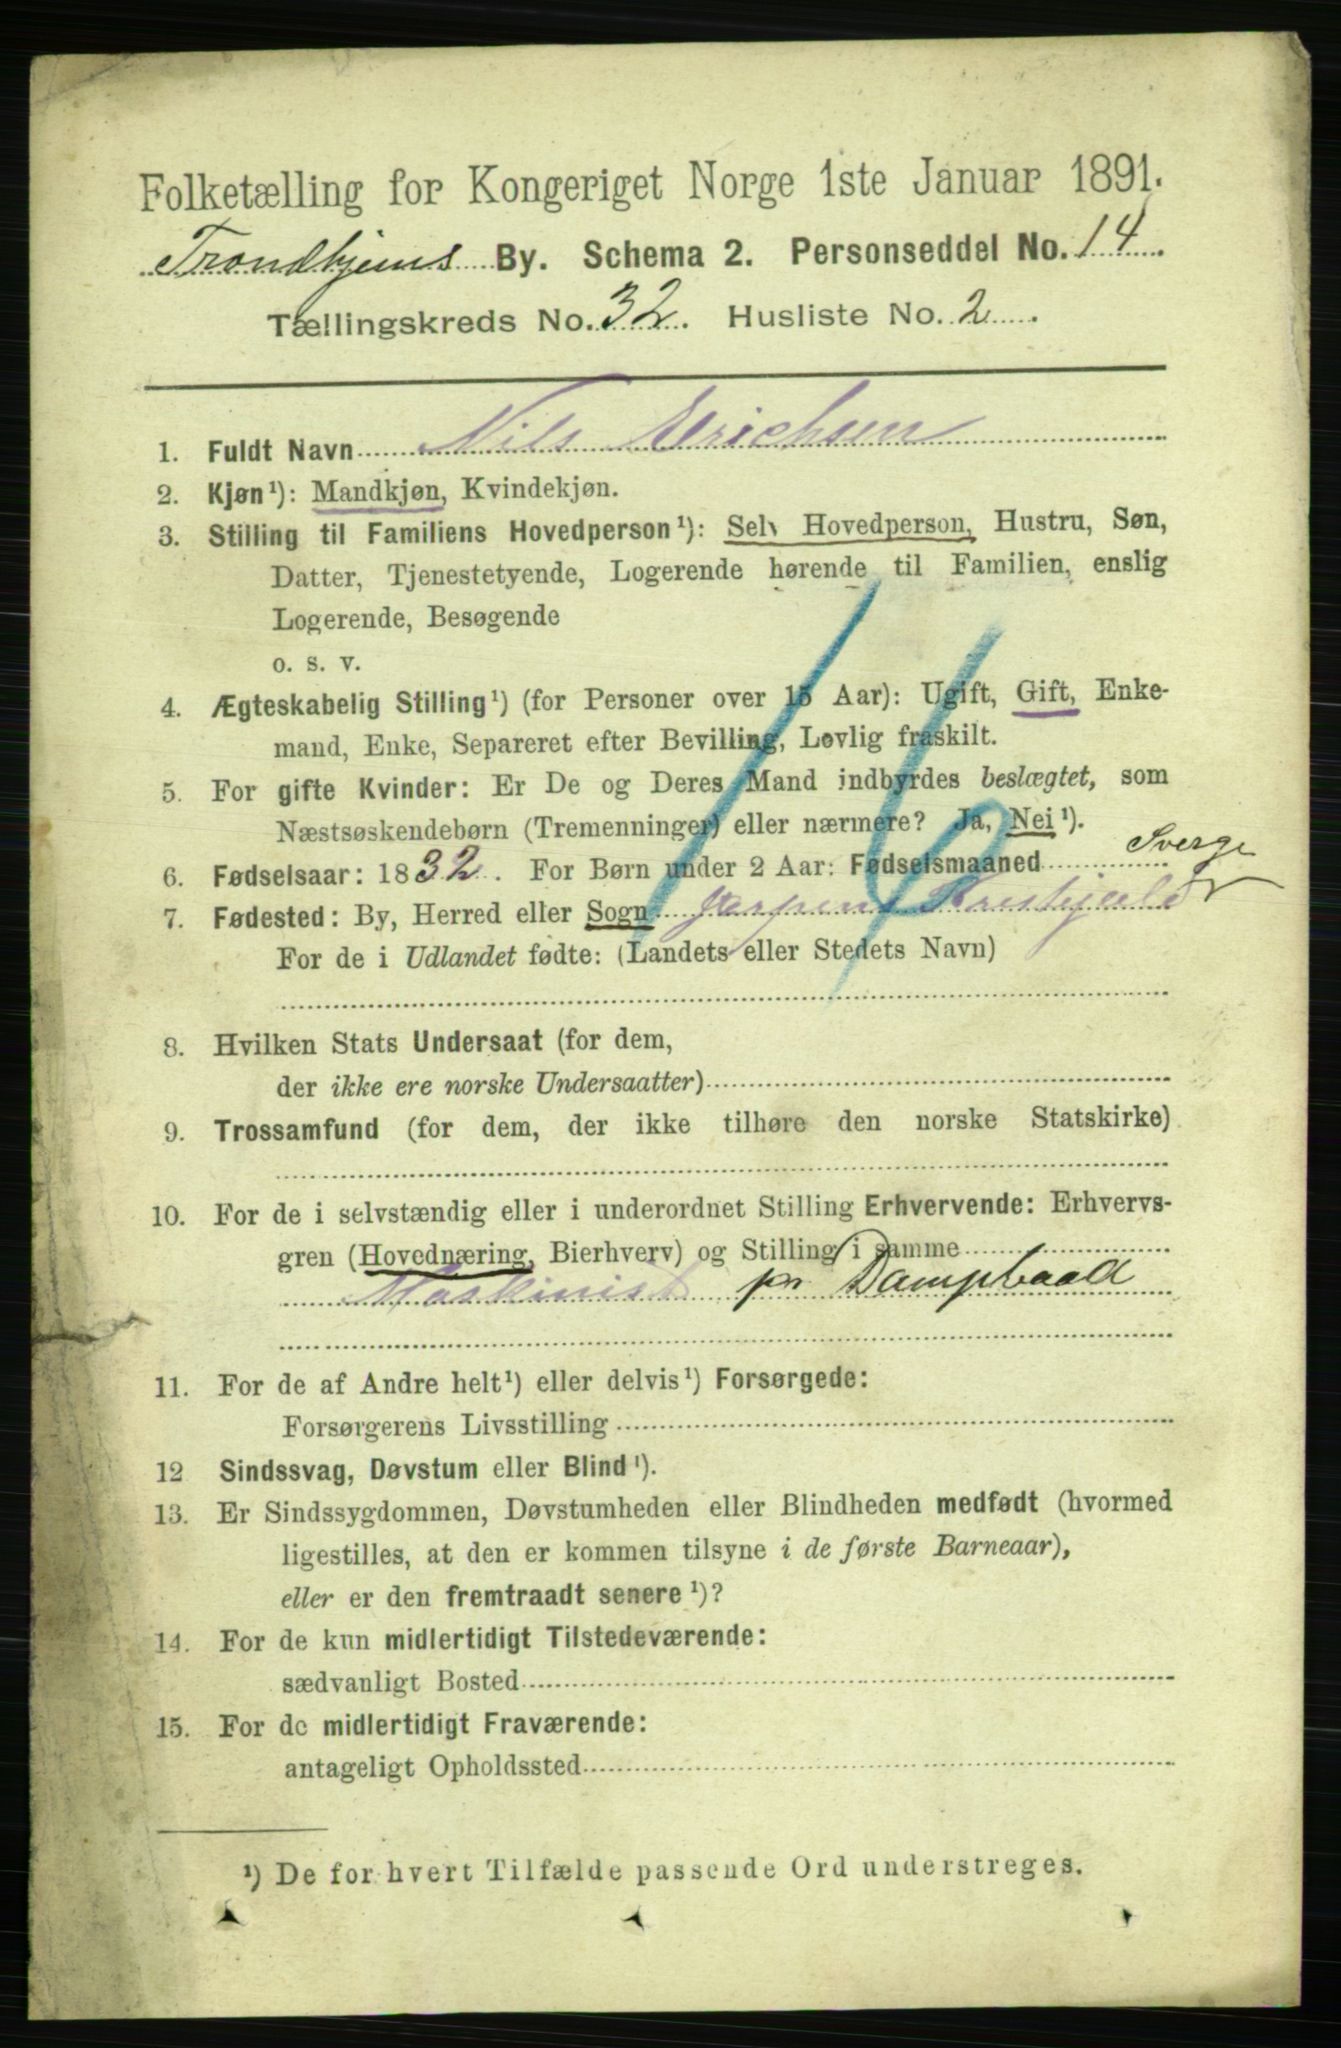 Folketælling for Kongeriget Norge 1ste Januar 1891.
Trondhjems By. Schema 2. Personseddel No. 14
Tællingskreds No. 32. Husliste No. 2.
1. Fuldt Navn Nils Erichsen
2. Kjøn¹): Mandkjøn, Kvindekjøn.
3. Stilling til Familiens Hovedperson¹): Selv Hovedperson, Hustru, Søn,
Datter, Tjenestetyende, Logerende hørende til Familien, enslig
Logerende, Besøgende
o. s. v.
4. Ægteskabelig Stilling¹) (for Personer over 15 Aar): Ugift, Gift, Enke-
mand, Enke, Separeret efter Bevilling, Lovlig fraskilt.
5. For gifte Kvinder: Er De og Deres Mand indbyrdes beslægtet, som
Næstsøskendebørn (Tremenninger) eller nærmere? Ja, Nei¹).
6. Fødselsaar: 1832. For Børn under 2 Aar: Fødselsmaaned
Sverge
7. Fødested: By, Herred eller Sogn
For de i Udlandet fødte: (Landets eller Stedets Navn)
8. Hvilken Stats Undersaat (for dem,
der ikke ere norske Undersaatter)
9. Trossamfund (for dem, der ikke tilhøre den norske Statskirke)
10. For de i selvstændig eller i underordnet Stilling Erhvervende: Erhvervs-
gren (Hovednæring, Bierhverv) og Stilling i samme
Maskinist pr Dampbaad
11. For de af Andre helt¹) eller delvis¹) Forsørgede:
Forsørgerens Livsstilling
12 Sindssvag, Døvstum eller Blind¹).
13. Er Sindssygdommen, Døvstumheden eller Blindheden medfødt (hvormed
ligestilles, at den er kommen tilsyne i de første Barneaar),
eller er den fremtraadt senere¹)?
14. For de kun midlertidigt Tilstedeværende:
sædvanligt Bosted
15. For de midlertidigt Fraværende:
antageligt Opholdssted
¹) De for hvert Tilfælde passende Ord understreges.